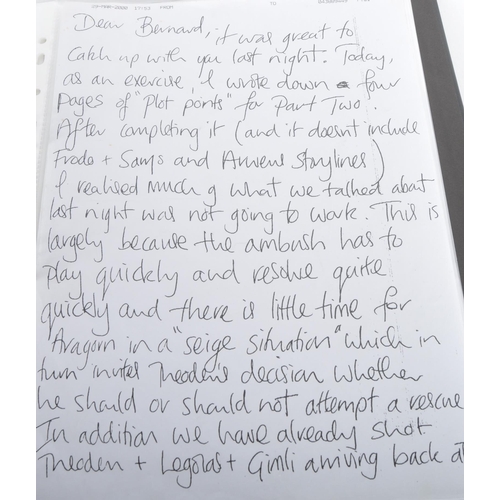 Dear Bernard, it was great to
Catch up with you last night. Today,
as an exercise, I wrote down four
Pages of "Plot points" for Part Two.
After completing it (and it doesnt include
Frodo + Sams and Arwens Storylines)
I realised much of what we talked about
last night was not going to work. This is
largely because the ambush has to
Play quickly and resolve quite
quickly and there is little time for
"Aragorn in a "seige situation" which in
turn invites Theoden's decision whether
he should or should not attempt a rescue
In addition we have already shot
Theoden + Legolas + Gimli arriving back at